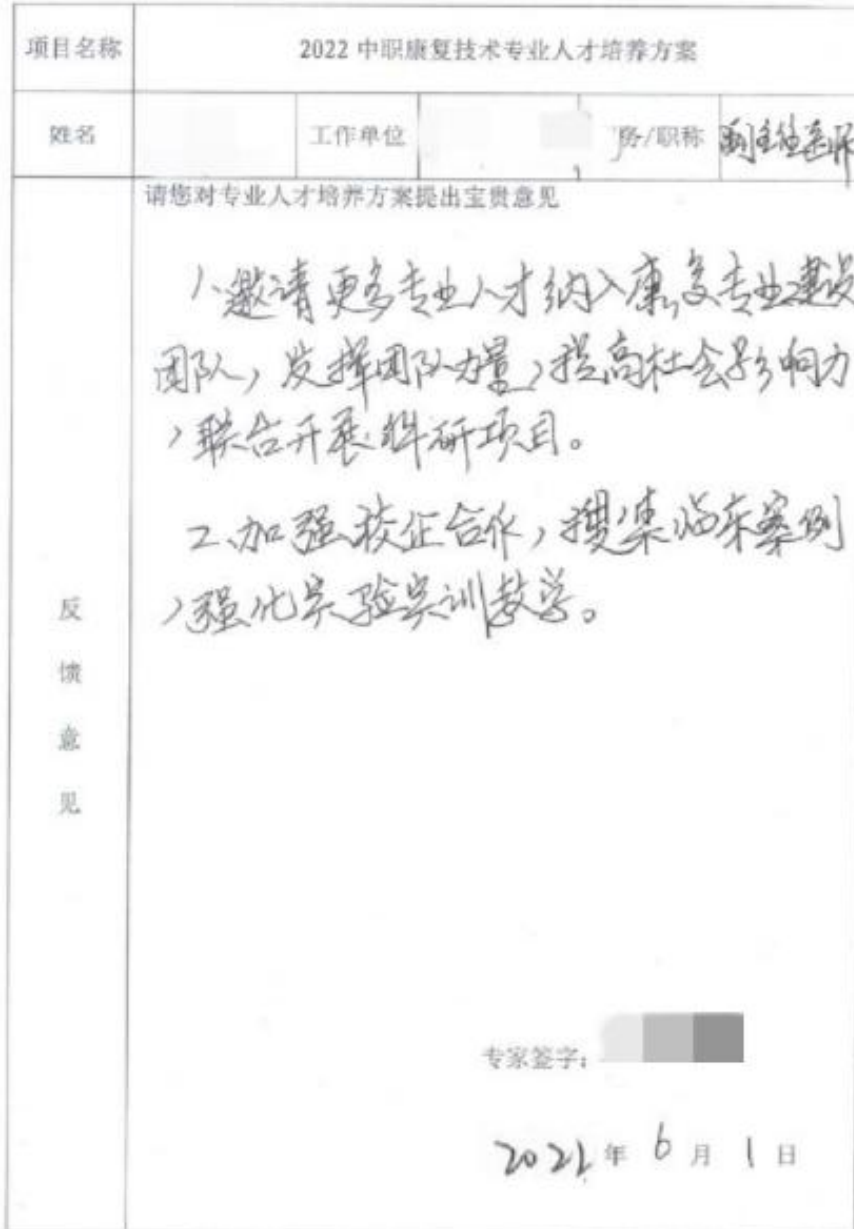 项目名称 2022 中职康复技术专业人才培养方案
姓名 工作单位 务/职称 副主任医师
请您对专业人才培养方案提出宝贵意见
1、邀请更多专业人才纳入康复专业建设
团队，发挥团队力量，提高社会影响力
，联合开展科研项目。
2、加强校企合作，搜集临床案例
，强化实验实训教学。
反
馈
意
见
专家签字：
2022 年 6 月 1 日